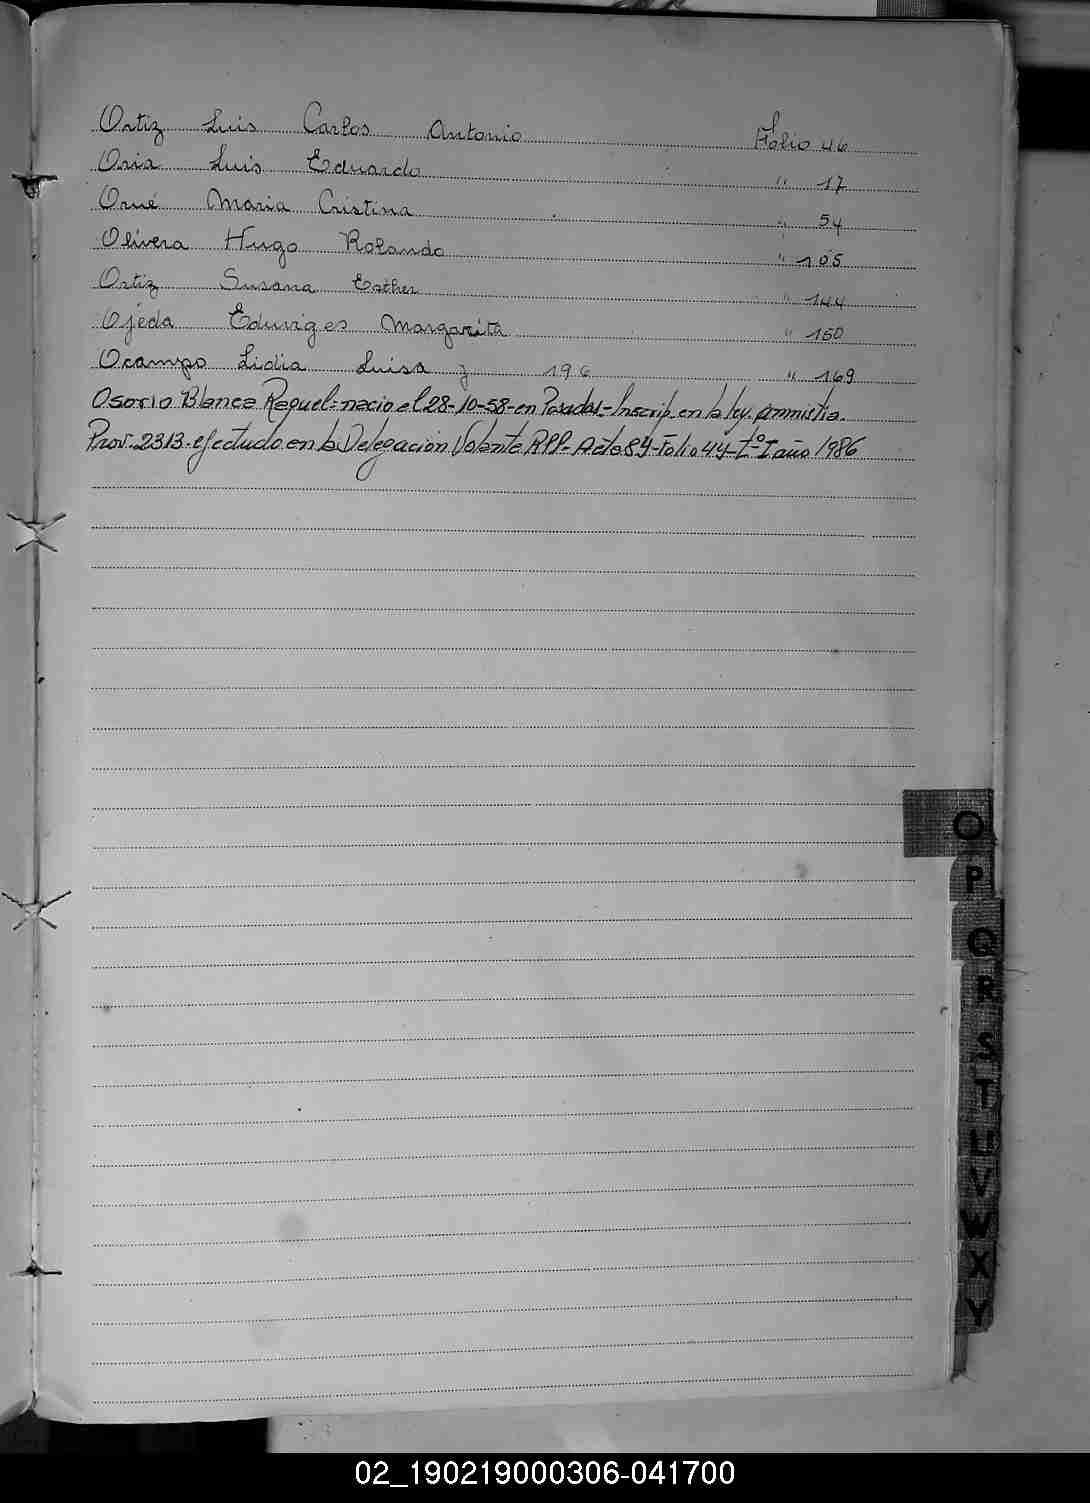 Ortiz Luis Carlos Antonio Folio 46
Oria Luis Eduardo " 17
Orué Maria Cristina " 54
Olivera Hugo Rolando " 105
Ortiz Susana Esther " 144
Ojéda Eduviges Margarita " 150
Ocampo Lidia Luisa 196 " 169
Osorio Blanca Raquel - nacio el 28-10-58 - en Posadas - Inscrip. en la ley. Amnistia.
Prov. 2313. efectuado en la Delegacion Volante RPP - Acta 84 - Folio 44 - tº I año 1986
O
P
Q
R
S
T
U
V
W
X
Y
02_190219000306-041700